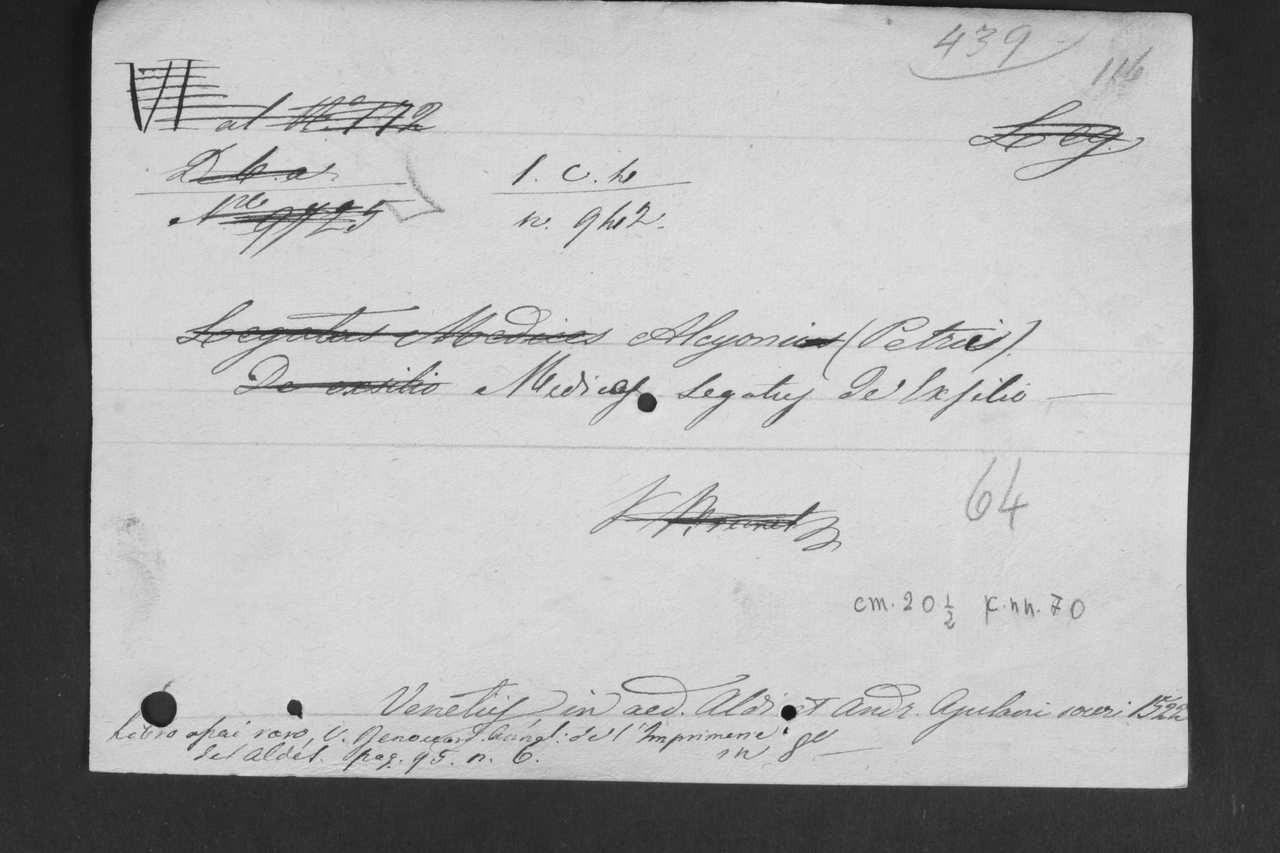 439
116
VI al N.º 172
Leg.
I. c. h
n. 942.
N.ro 9725
Legatus Medices Alcyonius (Petrus).
De exsilio Medices Legatus De Exsilio —
V Brunet
64
cm. 20 1/2 K. nn. 70
Venetiis in aed. Aldi et Andr. Asulani soceri. 1522
Libro assai raro, V. Renouard. Annal: de l'Imprimerie in 8º —
des Aldes. pag. 95. n. 6.